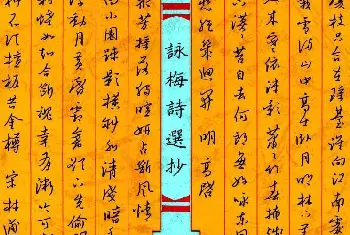 瓊枝只合在瑤臺誰向江南處
雪滿山中高士臥月明林下美
來寒依疏影蕭蕭竹春掩殘
漠苔自去何郎無好詠東風
愁絕幾回開 明 高啟
詠梅詩選抄
眾芳搖落獨暄妍占斷風情
向小園疏影橫斜水清淺暗
浮動月黃昏霜禽欲下先偷
粉蝶如知合斷魂幸有微吟可
狎不須檀板共金樽 宋 林逋